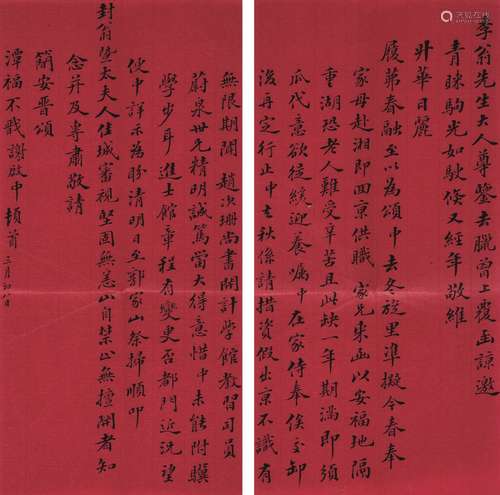 季翁先生大人尊鑒去臘曾上覆函諒邀
青睞駒光如駛倏又經年敬維
升華日麗
履茀春融至以為頌中去冬旋里準擬今春奉
家母赴湘即回京供職家兄來函以安福地隔
重湖恐老人難受辛苦且此缺一年期滿即須
瓜代意欲從緩迎養囑中在家侍奉俟交卸
後再定行止中去秋係請措資假出京不識有
無限期聞趙次珊尚書開計學館教習司員
蔚泉世兄精明誠篤當大得意惜中未能附驥
學步耳進士館章程有變更否都門近況望
便中詳示為盼清明日至郭家山祭掃順叩
封翁暨太夫人佳城審視堅固無恙山自禁止無擅開者知
念并及專肅敬請
簡安晉頌
潭福不戩謝啟中頓首三月初八日